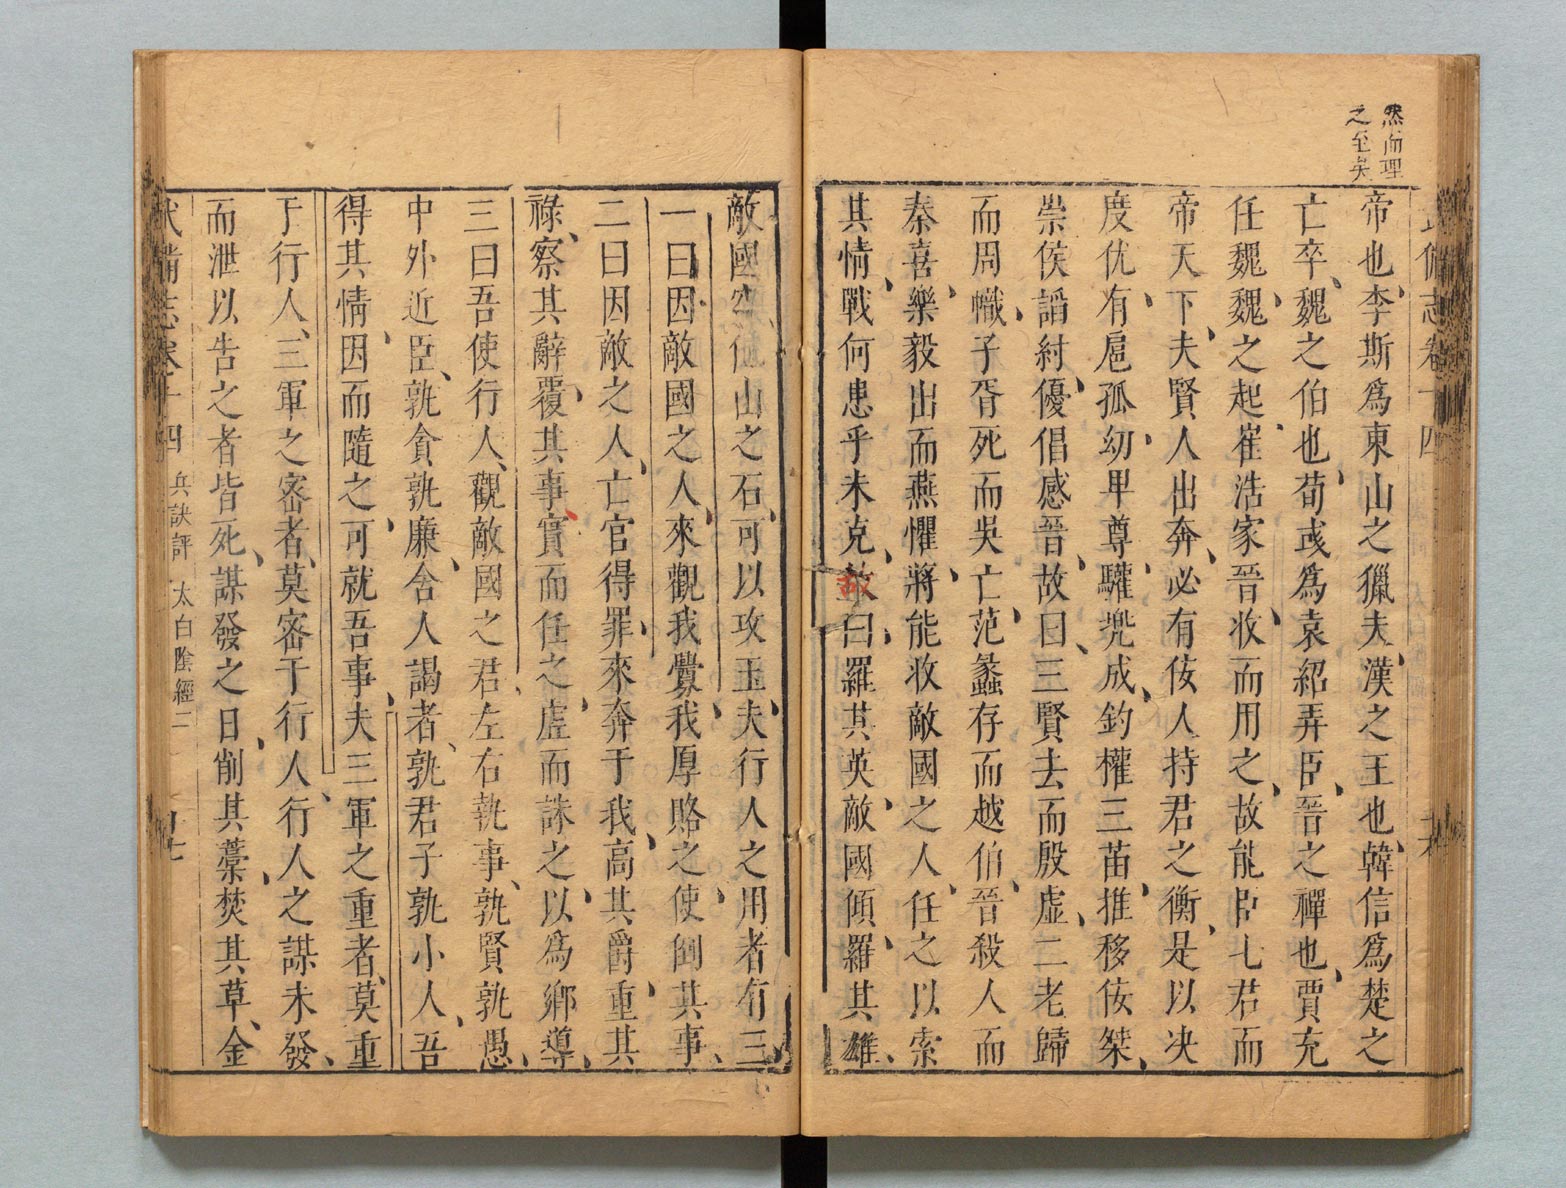 然而理
之至矣
武備志卷十四
帝也、李斯爲東山之獵夫、漢之王也、韓信爲楚之
亡卒、魏之伯也、荀彧爲袁紹弄臣、晉之禪也、賈充
任魏、魏之起、崔浩家晉、收而用之、故能臣七君而
帝天下、夫賢人出奔、必有佞人持君之衡、是以决
度优、有扈孤幼、卑尊、驩兜成、鈞權三苗、推移佞桀、
崇侯諂紂、優倡惑晉、故曰、三賢去而殷虛、二老歸
而周熾、子胥死而吳亡、范蠡存而越伯、晉殺人而
秦喜、樂毅出而燕懼、將能收敵國之人、任之以索
其情、戰何患乎未克、故曰、羅其英、敵國傾、羅其雄、
敵國空、他山之石、可以攻玉、夫行人之用者有三
一曰因敵國之人、來觀我釁、我厚賂之、使倒其事、
二曰因敵之人、亡官得罪、來奔于我、高其爵、重其
祿、察其辭、覆其事、實而任之、虛而誅之、以爲鄉導、
三曰吾使行人、觀敵國之君、左右執事、孰賢孰愚、
中外近臣、孰貪孰廉、舍人謁者、孰君子孰小人、吾
得其情、因而隨之、可就吾事、夫三軍之重者、莫重
于行人、三軍之密者、莫密于行人、行人之謀未發、
而泄以告之者皆死、謀發之日、削其藁、焚其草、金
武備志卷十四 兵訣評 太白陰經二 四七